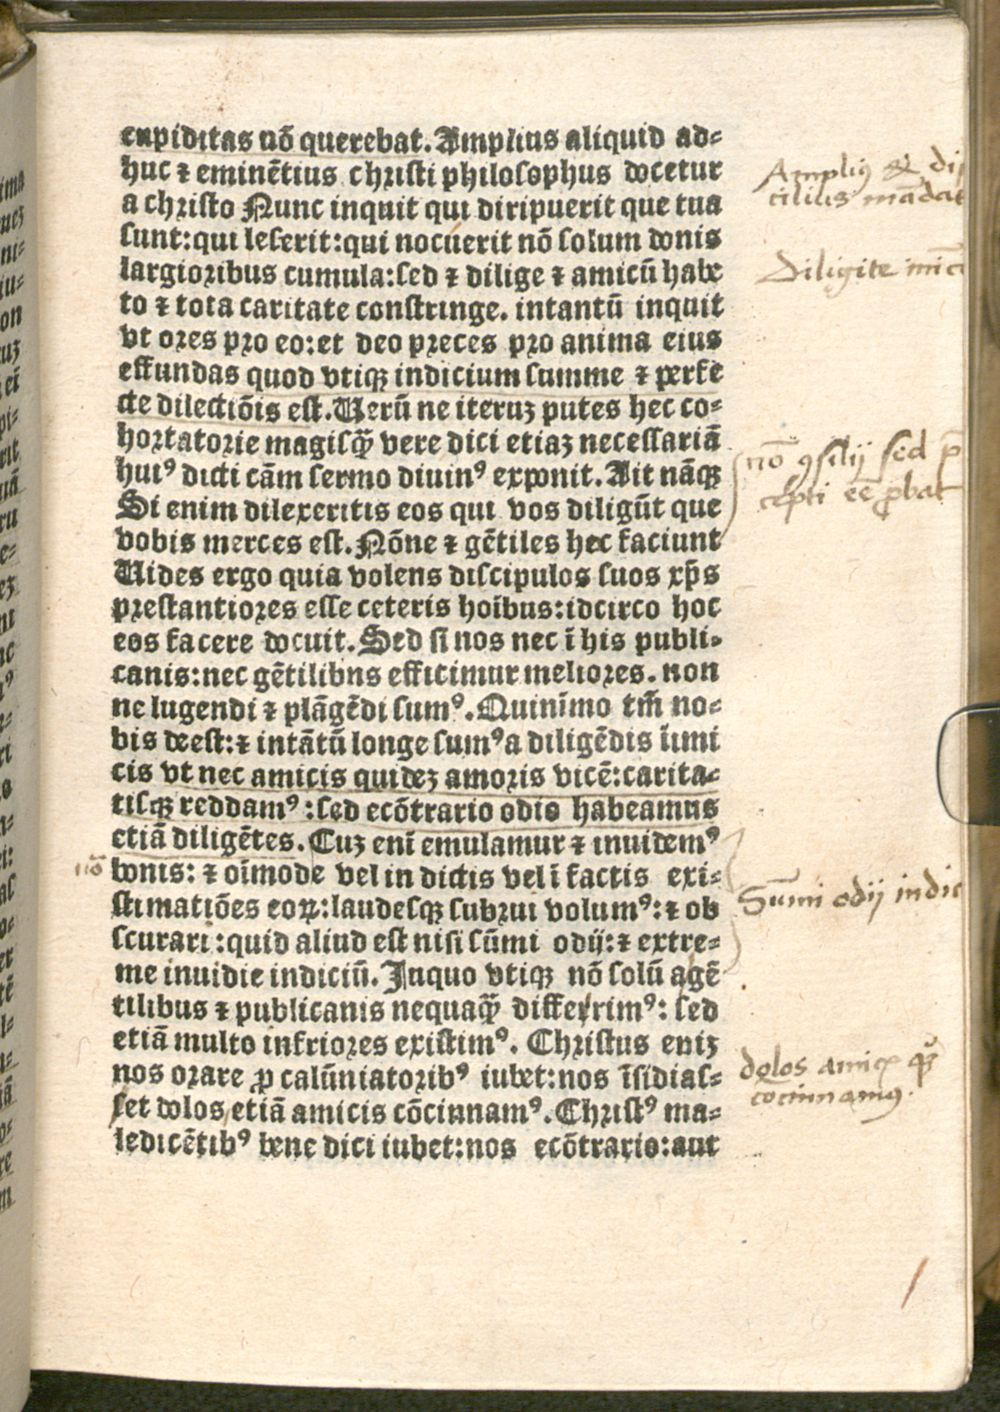 cupiditas nō querebat. Amplius aliquid ad⸗
huc ⁊ eminētius christi philosophus docetur
a christo Nunc inquit qui diripuerit que tua
sunt: qui leserit: qui nocuerit nō solum donis
largioribus cumula: sed ⁊ dilige ⁊ amicū habe
to ⁊ tota caritate constringe. intantū inquit
vt ores pro eo: et deo preces pro anima eius
effundas quod vtiqꝫ indicium summe ⁊ perfe
cte dilectiōis est. Verū ne iteruꝫ putes hec co⸗
hortatorie magisq̄ꝫ vere dici etiaꝫ necessariā
huiꝰ dicti cām sermo diuinꝰ exponit. Ait nāqꝫ
Si enim dilexeritis eos qui vos diligūt que
vobis merces est. Nōne ⁊ gētiles hec faciunt
Vides ergo quia volens discipulos suos xp̄s
prestantiores esse ceteris hoībus: idcirco hoc
eos facere docuit. Sed si nos nec ī his publi⸗
canis: nec gētilibns efficimur meliores. non
ne lugendi ⁊ plāgēdi sumꝰ. Quinīmo tm̄ no⸗
bis deest: ⁊ intātū longe sumꝰ a diligēdis īimi
cis vt nec amicis quideꝫ amoris vicē: carita⸗
tisqꝫ reddamꝰ: sed ecōtrario odio habeamus
etiā diligētes. Cuꝫ enī emulamur ⁊ inuidemꝰ
bonis: ⁊ oīmode vel in dictis vel ī factis exi⸗
stimatiōes eoꝝ: laudesqꝫ subrui volumꝰ: ⁊ ob
scurari: quid aliud est nisi sūmi odij: ⁊ extre⸗
me inuidie indiciū. Inquo vtiqꝫ nō solū a gē
tilibus ⁊ publicanis nequaq̄ꝫ differrimꝰ: sed
etiā multo infriores existimꝰ. Christus eniꝫ
nos orare ꝓ calūniatoribꝰ iubet: nos īsidias⸗
set dolos etiā amicis cōcinnamꝰ. Christꝰ ma⸗
ledicētibꝰ bene dici iubet: nos ecōtrario: aut
Ampliꝰ & di
cililis mādat
Diligite inīc
nō ꝯsilij sed p̄
cepti eē ꝓbat
nō
Sūmi odij indic
dolos amic
cōcinnamꝰ.